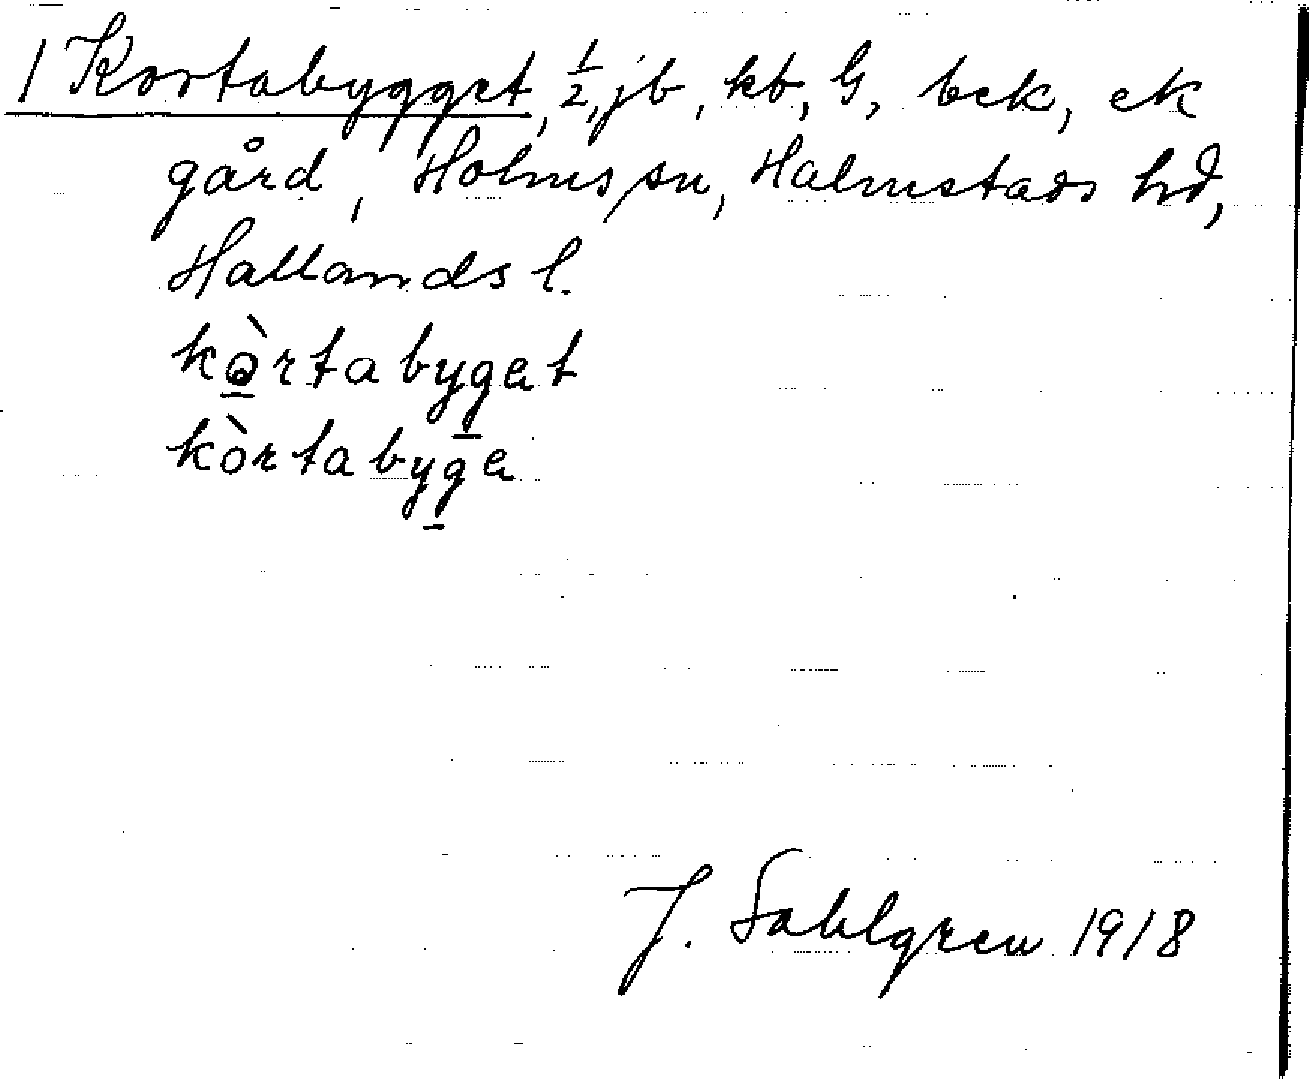 1 Kortabygget, ½, jb, kb, G, bek, ek
gård, Holms sn, Halmstads hd,
Hallands l.
kòrtabyget
kòrtabyge
J. Sahlgren 1918